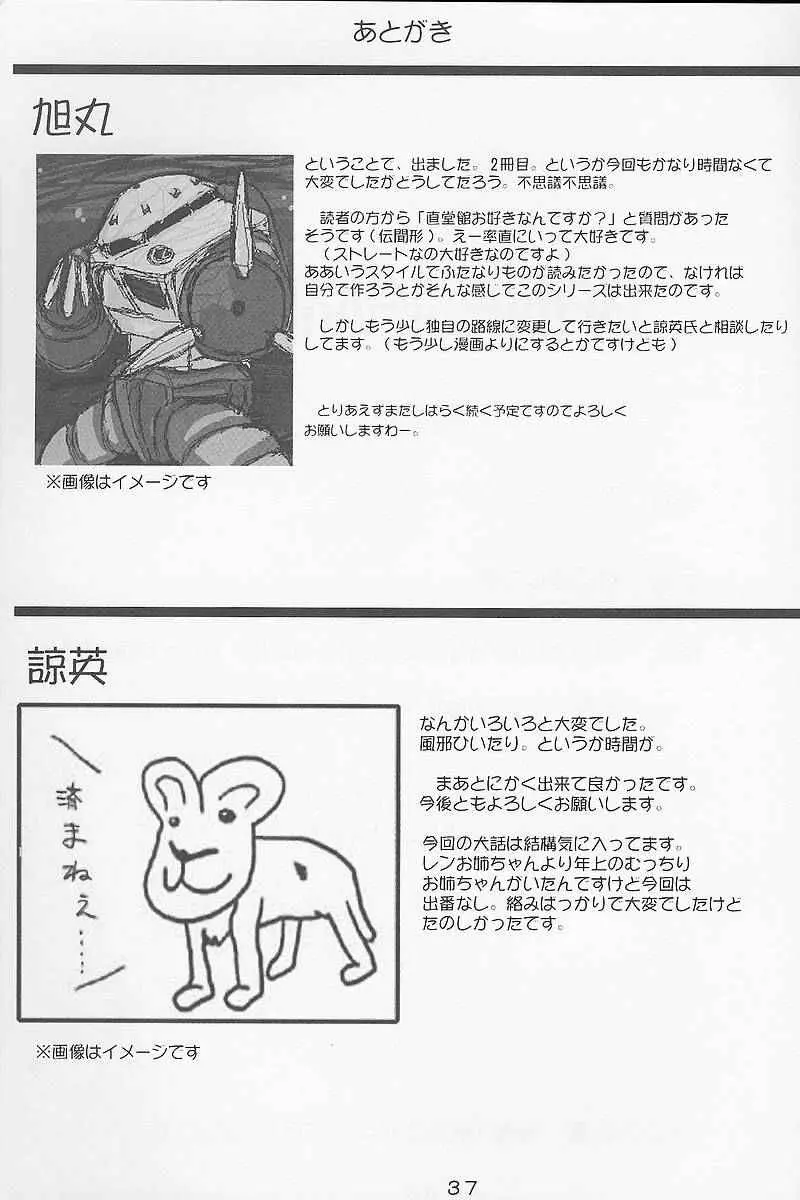 あとがき
旭丸
ということて、出ました。2冊目。というか今回もかなり時間なくて
大変でしたがどうしてたろう。不思議不思議。
読者の方から「直堂館お好きなんですか？」と質問があった
そうです(伝聞形)。えー率直にいって大好きです。
(ストレートなの大好きなのですよ)
ああいうスタイルでふたなりものが読みたかったので、なければ
自分で作ろうとかそんな感してこのシリーズは出来たのです。
しかしもう少し独自の路線に変更して行きたいと諒英氏と相談したり
してます。(もう少し漫画よりにするとかですけども)
とりあえすまだしはらく続く予定ですのでよろしく
お願いしますわー。
※画像はイメージです
諒英
済まねぇ……
なんかいろいろと大変でした。
風邪ひいたり。というか時間が。
まあとにかく出来て良かったです。
今後ともよろしくお願いします。
今回の犬話は結構気に入ってます。
レンお姉ちゃんより年上のむっちり
お姉ちゃんがいたんですけど今回は
出番なし。絡みはっかりで大変でしたけど
たのしかったです。
※画像はイメージです
37